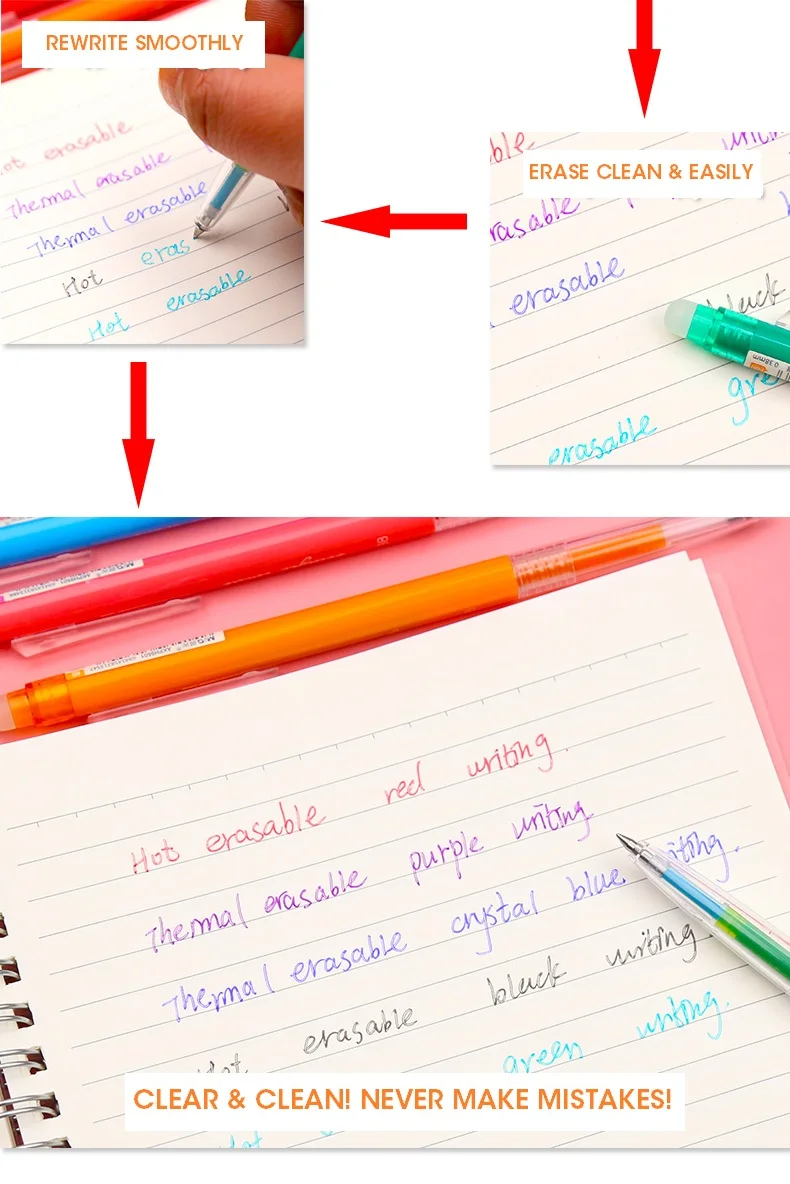 REWRITE SMOOTHLY
erasable
Thermal erasable
Thermal erasable
Hot eras
Hot erasable
ERASE CLEAN & EASILY
erasable
erasable
black
0.38mm
erasable
M&G
M&G
Hot erasable red writing.
Thermal erasable purple writing
Thermal erasable crystal blue
erasable black writing
green writing.
CLEAR & CLEAN! NEVER MAKE MISTAKES!